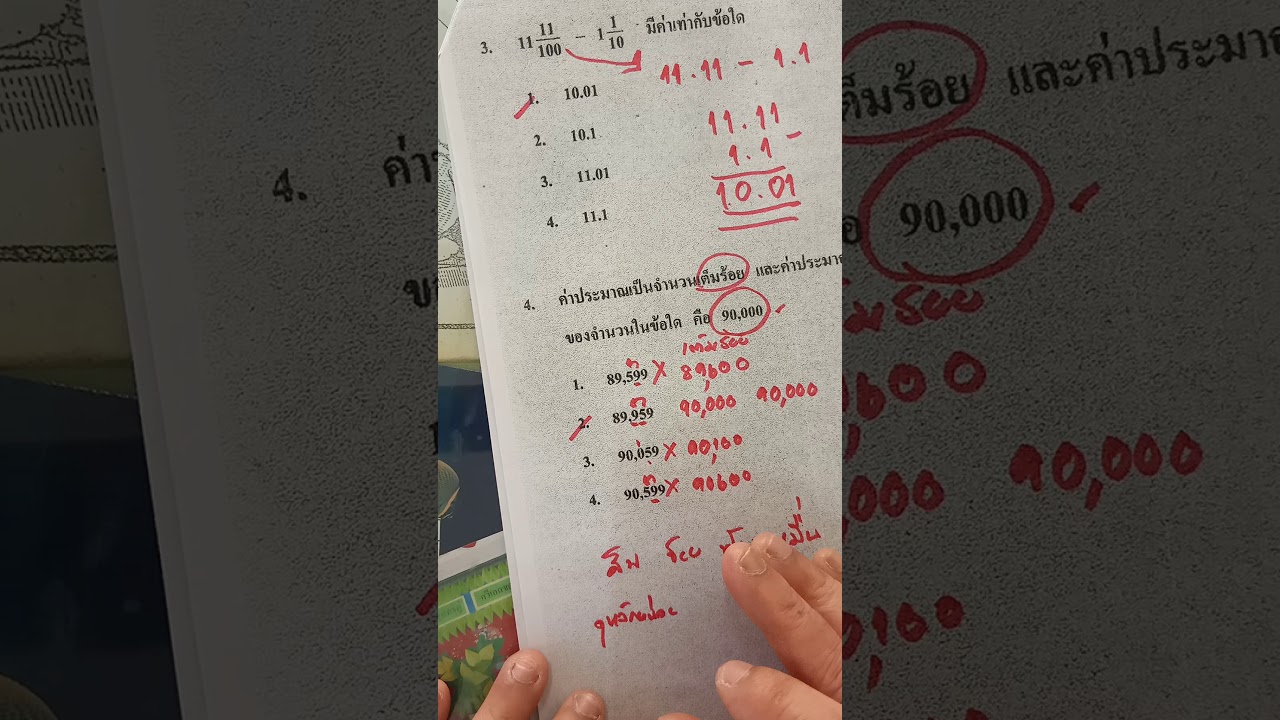 3. 11 11/100 - 1 1/10 มีค่าเท่ากับข้อใด
11.11 - 1.1
1. 10.01
2. 10.1
3. 11.01
4. 11.1
11.11
1.1 -
10.01
4. ค่าประมาณเป็นจำนวนเต็มร้อย และค่าประมา
ของจำนวนในข้อใด คือ 90,000 ✓
เต็มร้อย
1. 89,599 × 89,600
2. 89,959 90,000 90,000
3. 90,059 × 90,100
4. 90,599 × 90600
สิบ ร้อย หมื่น